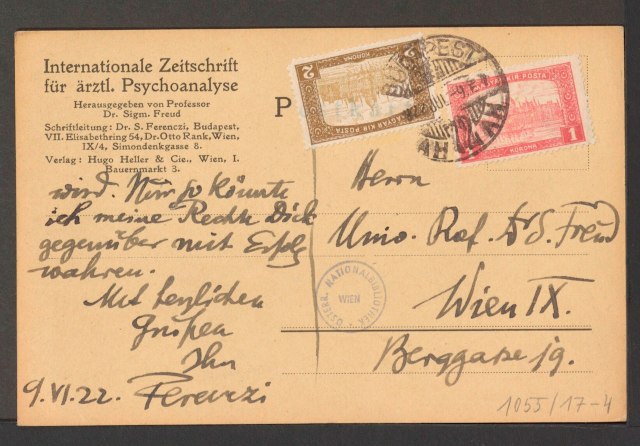 Internationale Zeitschrift
für ärztl. Psychoanalyse
Herausgegeben von Professor
Dr. Sigm. Freud
Schriftleitung: Dr. S. Ferenczi, Budapest,
VII. Elisabethring 54, Dr. Otto Rank, Wien,
IX/4, Simondenkgasse 8.
Verlag: Hugo Heller & Cie., Wien, I.
Bauernmarkt 3.
wird. Nur so könnte
ich meine Rechte Dick
gegenüber mit Erfolg
wahren.
Mit herzlichen
Grüßen
Ihr
Ferenczi
9.VI.22.
P
2
KORONA
MAGYAR KIR. POSTA
MAGYAR KIR. POSTA
1
KORONA
BUDAPEST
Herrn
Univ. Prof. Dr S. Freud
Wien IX.
Berggasse 19.
ÖSTERR. NATIONALBIBLIOTHEK
WIEN
1055/17-4